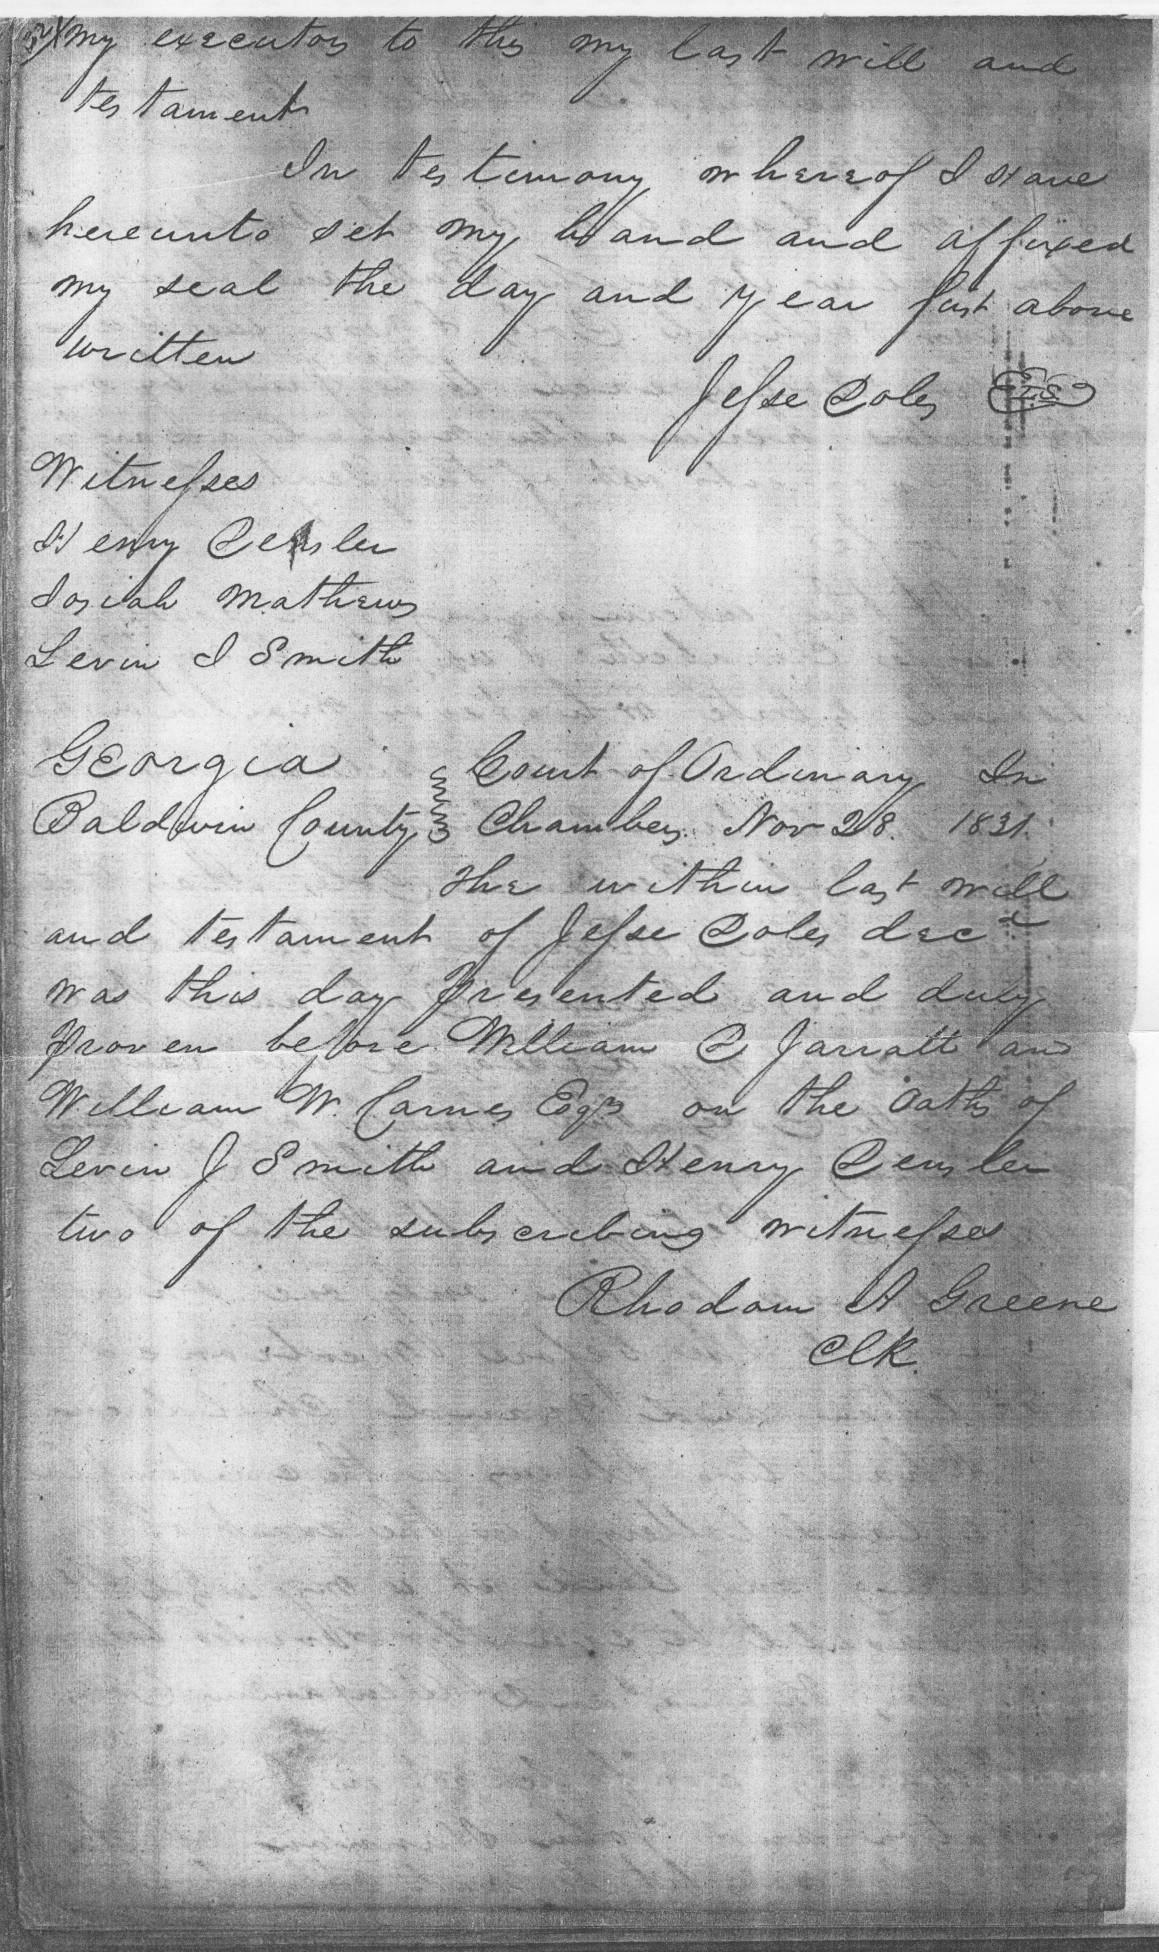 my executors to this my last will and
testament
In testimony whereof I Have
hereunto set my hand and affixed
my seal the day and year first above
written
Jesse Doles L.S.
Witnesses
Henry Densler
Josiah Mathews
Levin J Smith
Georgia Court of Ordinary In
Baldwin County Chambers Nov 28. 1831.
The within last will
and testament of Jesse Doles decd
was this day Presented and duly
Proven before William D Jarratt and
William W. Carnes Esqrs on the Oaths of
Levin J Smith and Henry Densler
two of the subscribing witnesses
Rhodom A Greene
Clk.